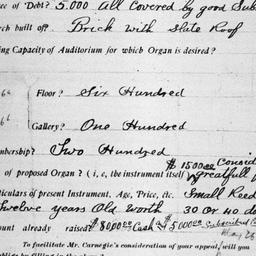 ce of Debt? 5.000 All Covered by good Sub
rch built of? Brick with Slate Roof
ing Capacity of Auditorium for which Organ is desired?
Floor? Six Hundred
Gallery? One Hundred
mbership? Two Hundred
$1500.00 Consid
of proposed Organ? (i.e., the instrument itself) greatfull
ticulars of present Instrument, Age, Price, etc. Small Reed
Twelve years Old Worth 30 or 40 do
ount already raised $8000.00 Cash & $5000.00 Subscribed
To facilitate Mr. Carnegie's consideration of your appeal, will you